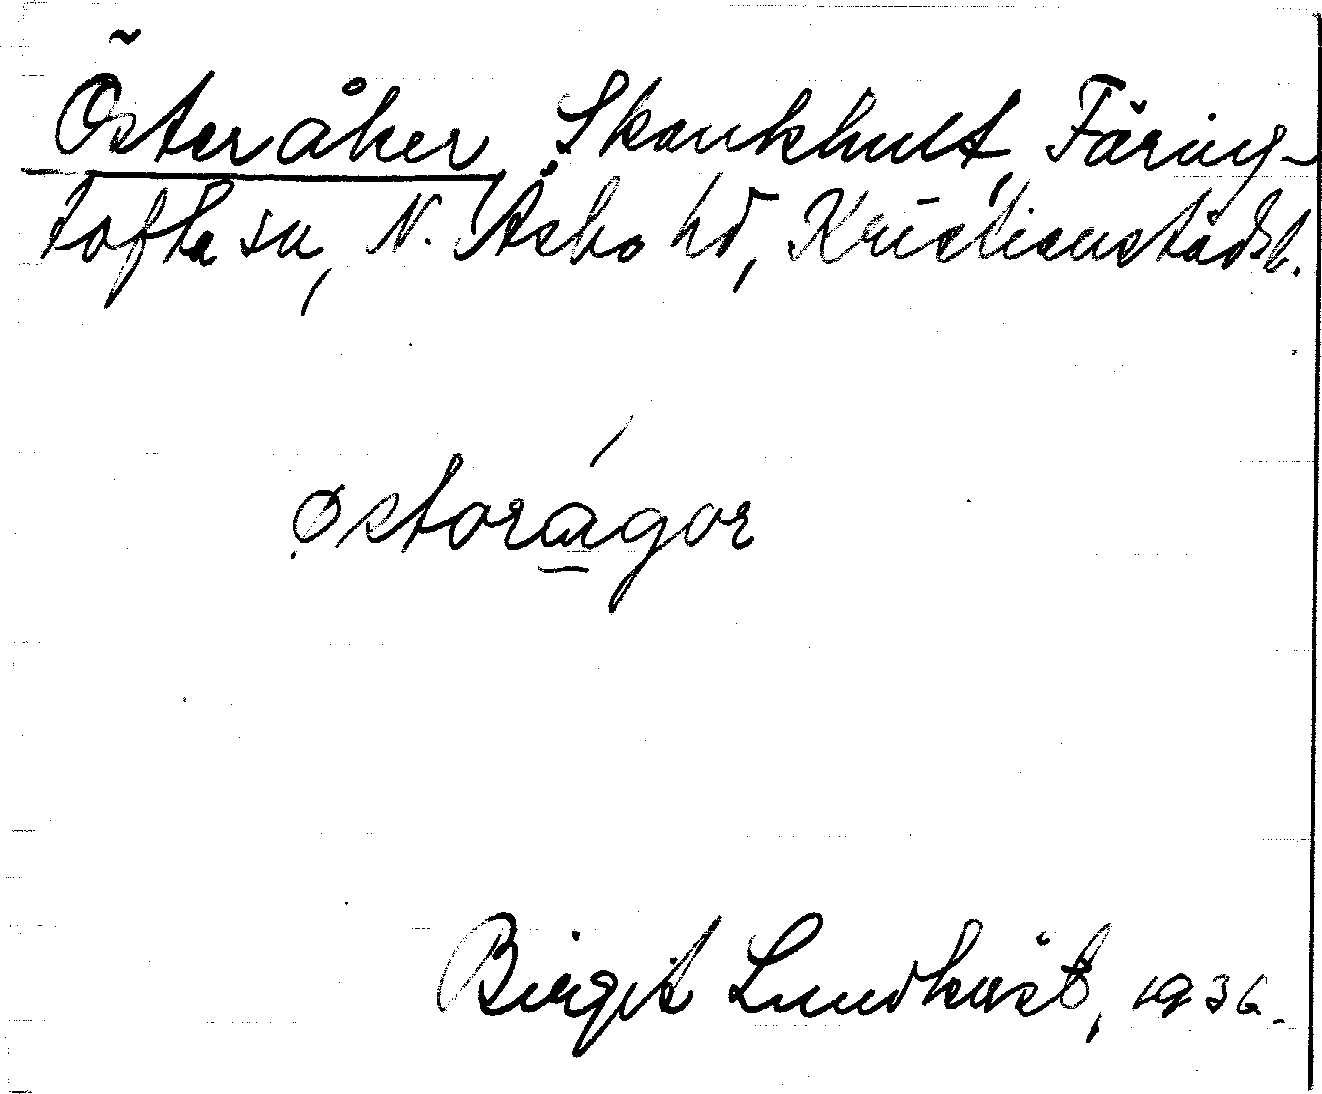 Österåker Skankhult, Färing-
tofta sn, N. Åsbo hd, Kristianstads l.
østorågor
Birgit Lundkvist, 1936.